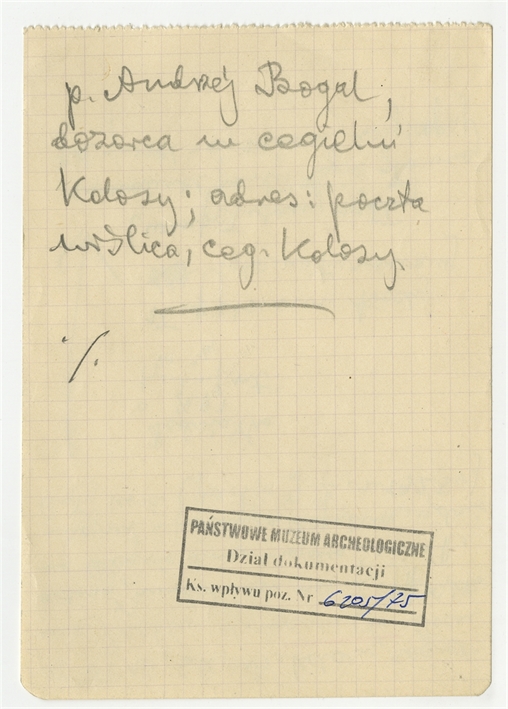 p. Andrzej Bogal,
dozorca w cegielni
Kolosy; adres: poczta
Wiślica, ceg. Kolosy.
·/.
PAŃSTWOWE MUZEUM ARCHEOLOGICZNE
Dział dokumentacji
Ks. wpływu poz. Nr 6205/75